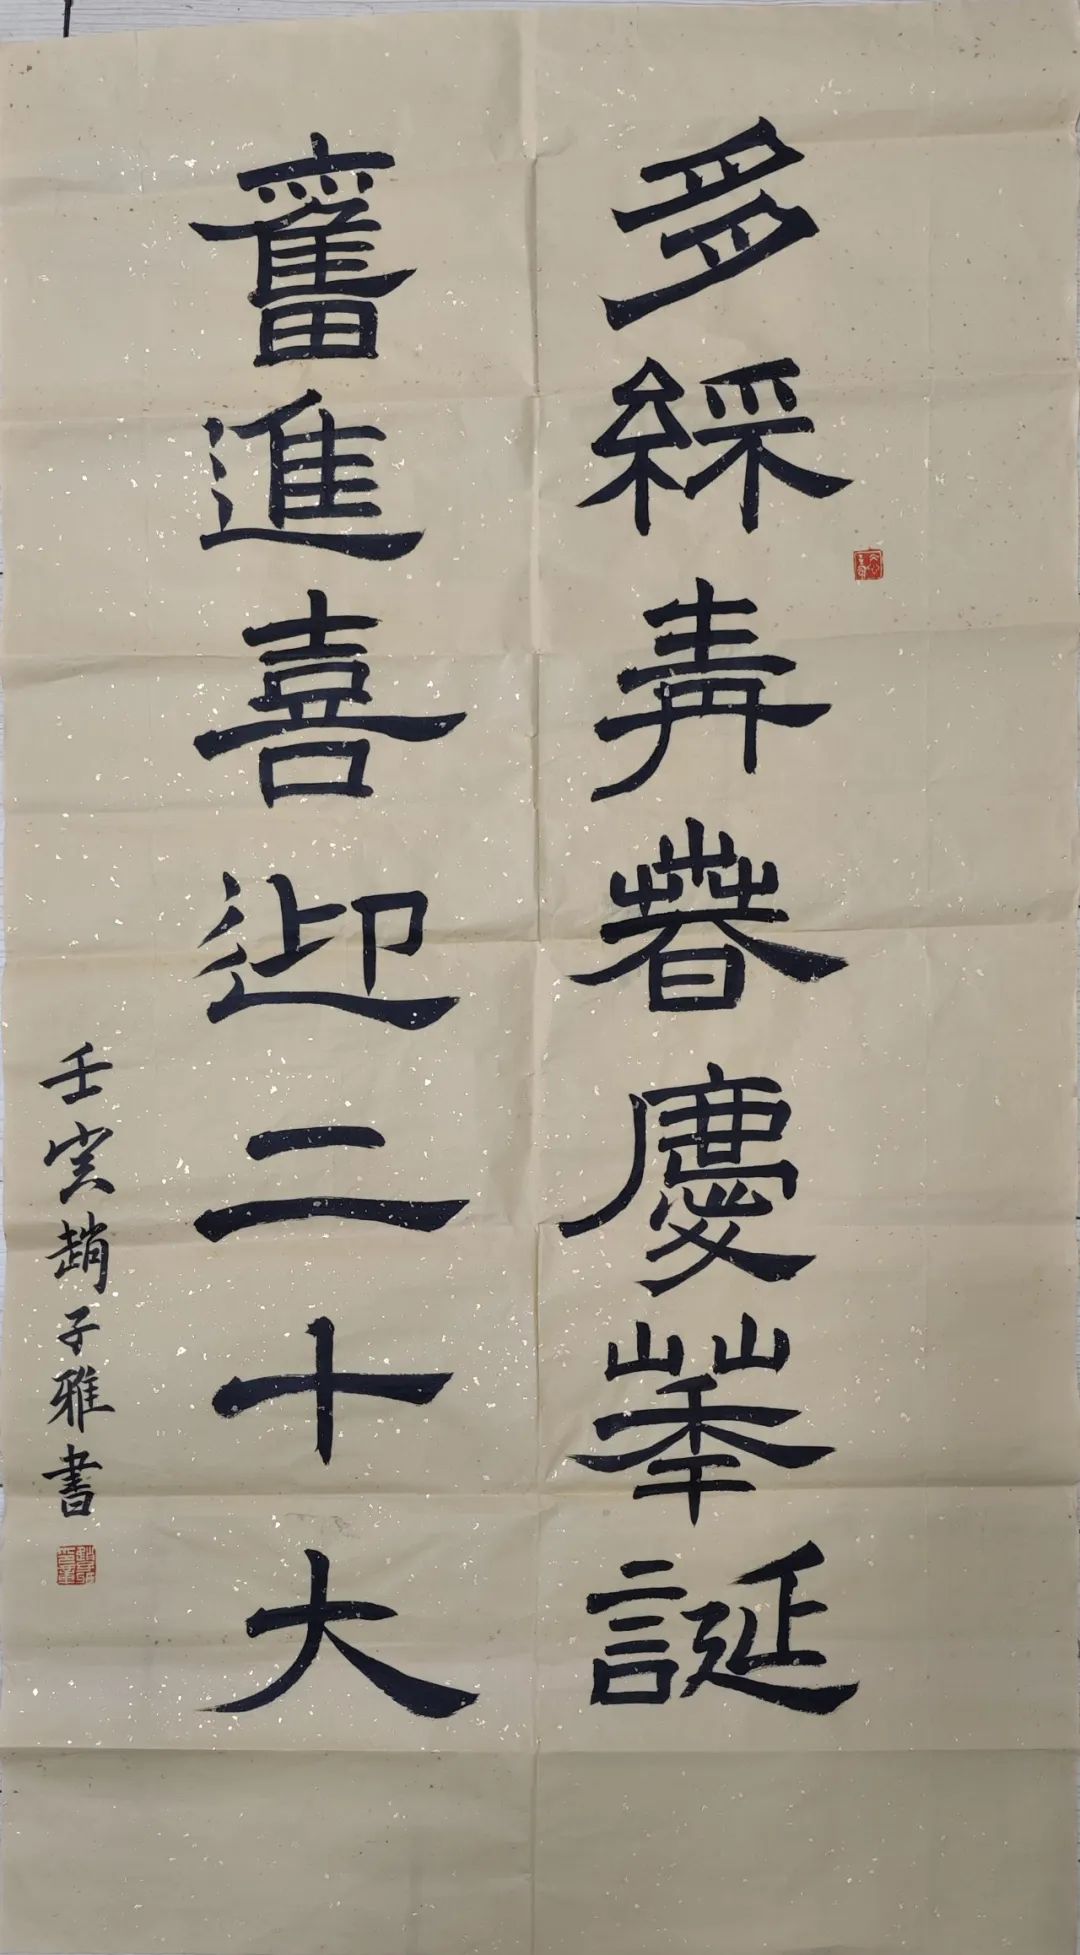 多綵青春慶華誕
奮進喜迎二十大
壬寅趙子雅書